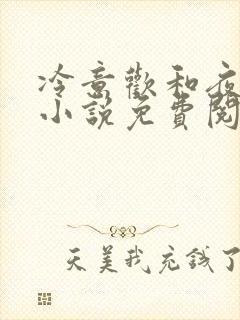 冷意歡和夜
小說免費閱
天美我充錢了